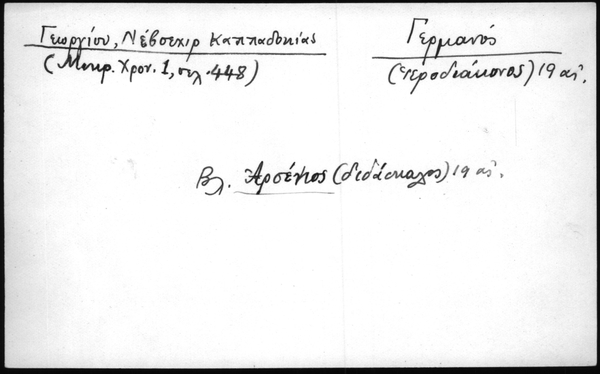 Γεωργίου, Νέβσεχιρ Καππαδοκίας
(Μικρ. Χρον. 1, σελ. 448)
Γερμανός
(ιεροδιάκονος) 19 αἰ.
Βλ. Ἀρσένιος (διδάσκαλος) 19 αἰ.